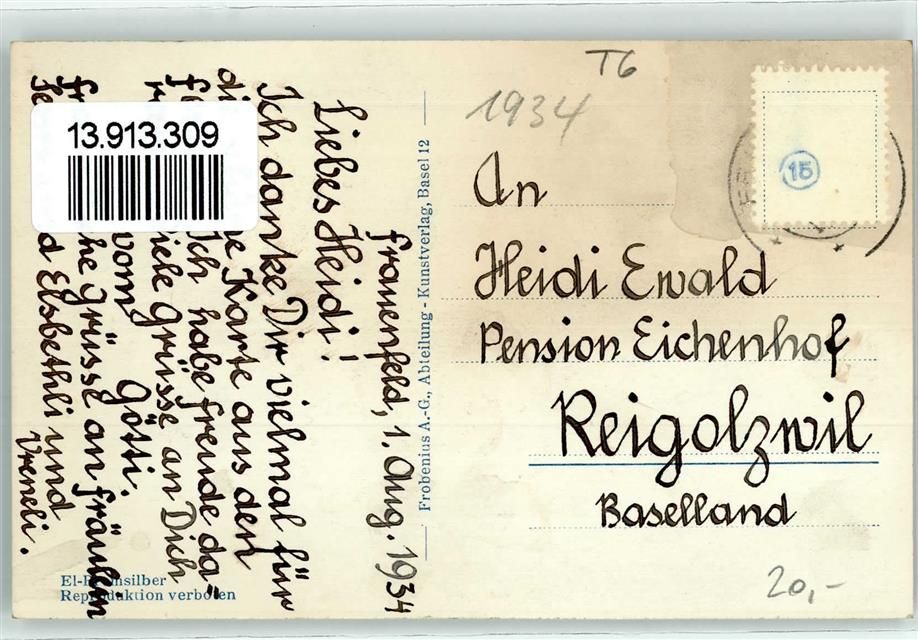 T6
1934
15
An
Heidi Ewald
Pension Eichenhof
Reigolzwil
Baselland
20,-
Frobenius A.-G., Abteilung - Kunstverlag, Basel 12
frauenfeld, 1. Aug. 1934
Liebes Heidi!
Ich danke Dir vielmal für
Karte aus den
Ich habe freude da=
viele Grüsse an Dich
vom Götti.
Grüsse an fräulein
Elsbethli und
Vreneli.
13.913.309
El-Bromsilber
Reproduktion verboten